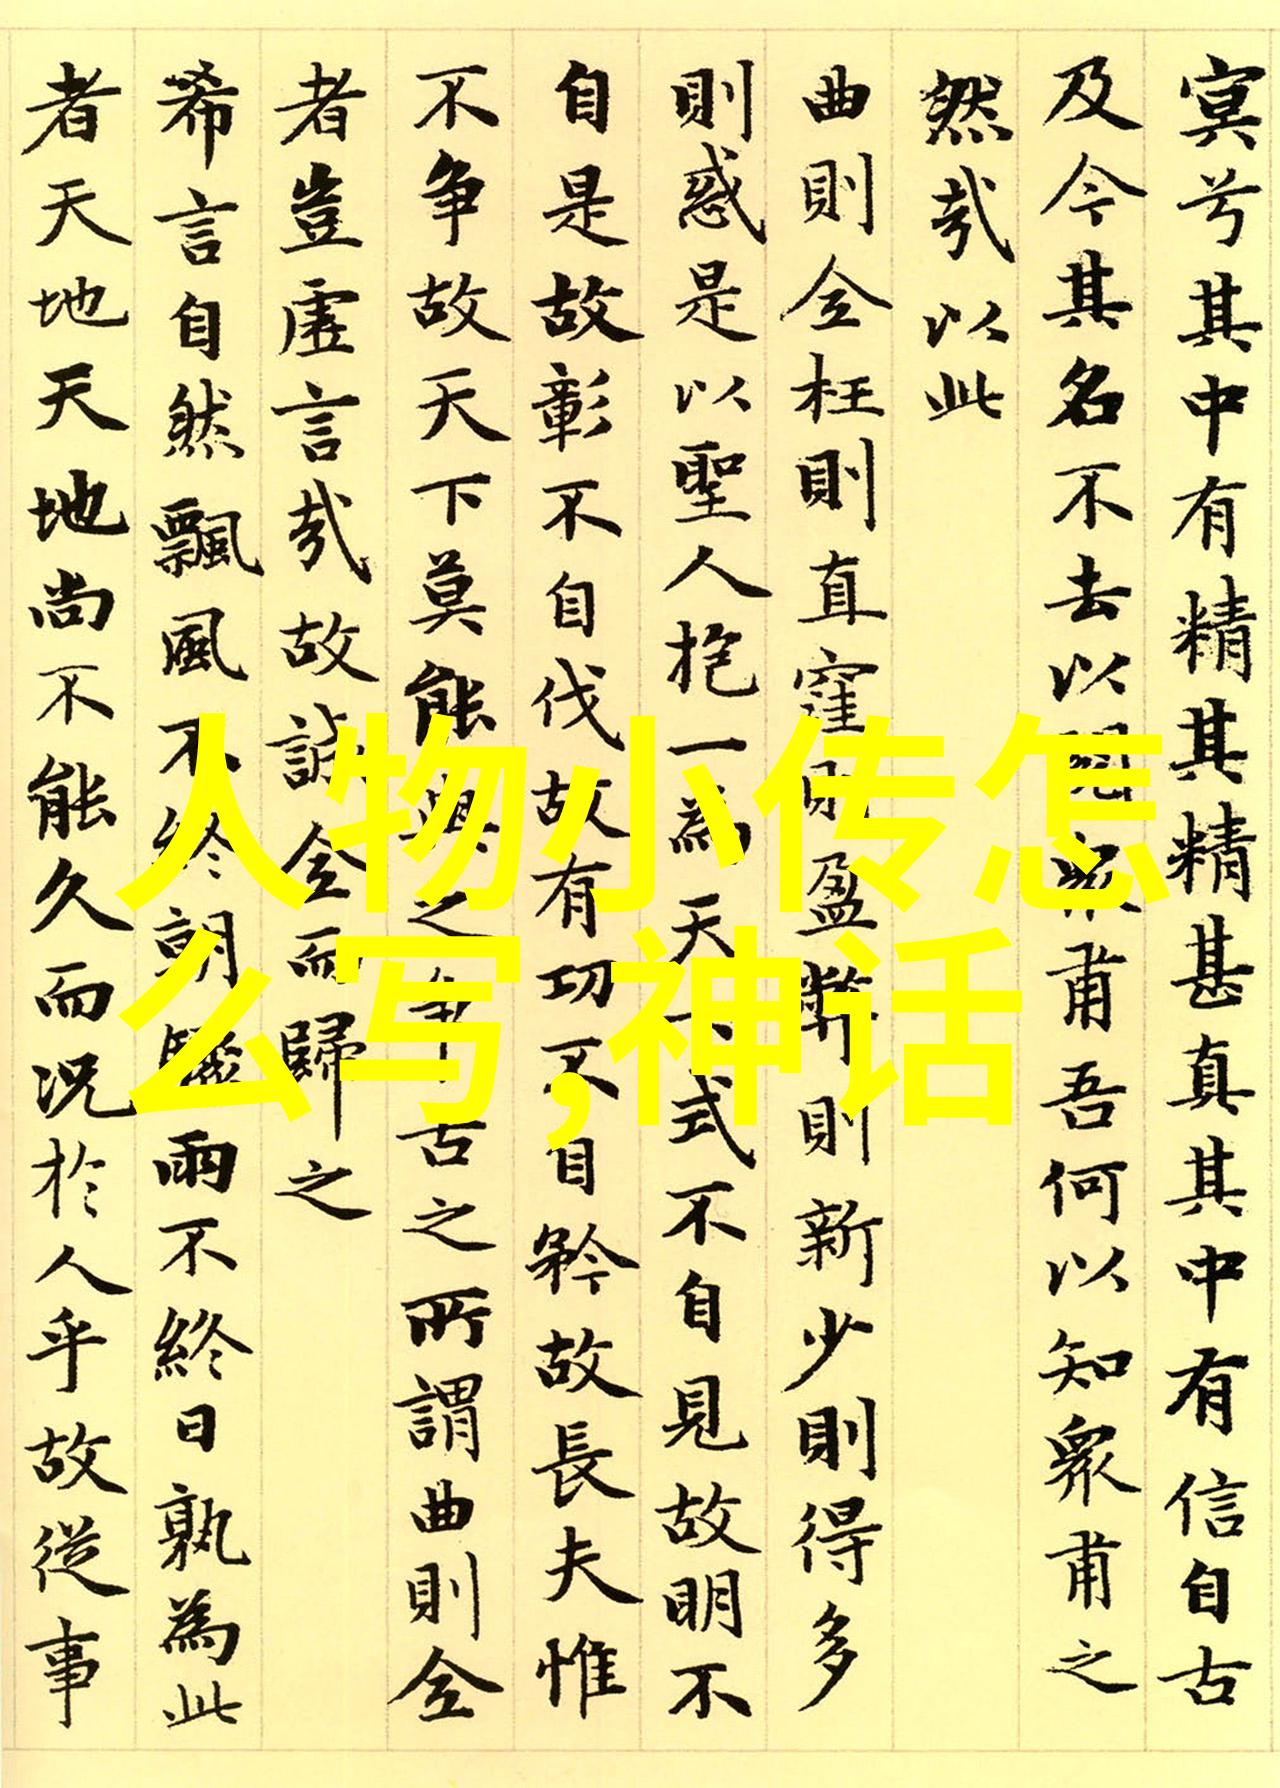 冥兮其中有精其精甚真其中有信自古
及今其名不去以閱衆甫吾何以知衆甫之
然哉以此
曲則全枉則直窪則盈弊則新少則得多
則惑是以聖人抱一為天下式不自見故明不
自是故彰不自伐故有功不自矜故長夫惟
不争故天下莫能與之争古之所謂曲則全
者豈虛言哉故誠全而歸之
希言自然飄風不終朝驟雨不終日孰為此
者天地天地尚不能久而況於人乎故從事
人物小传怎
么写,神话